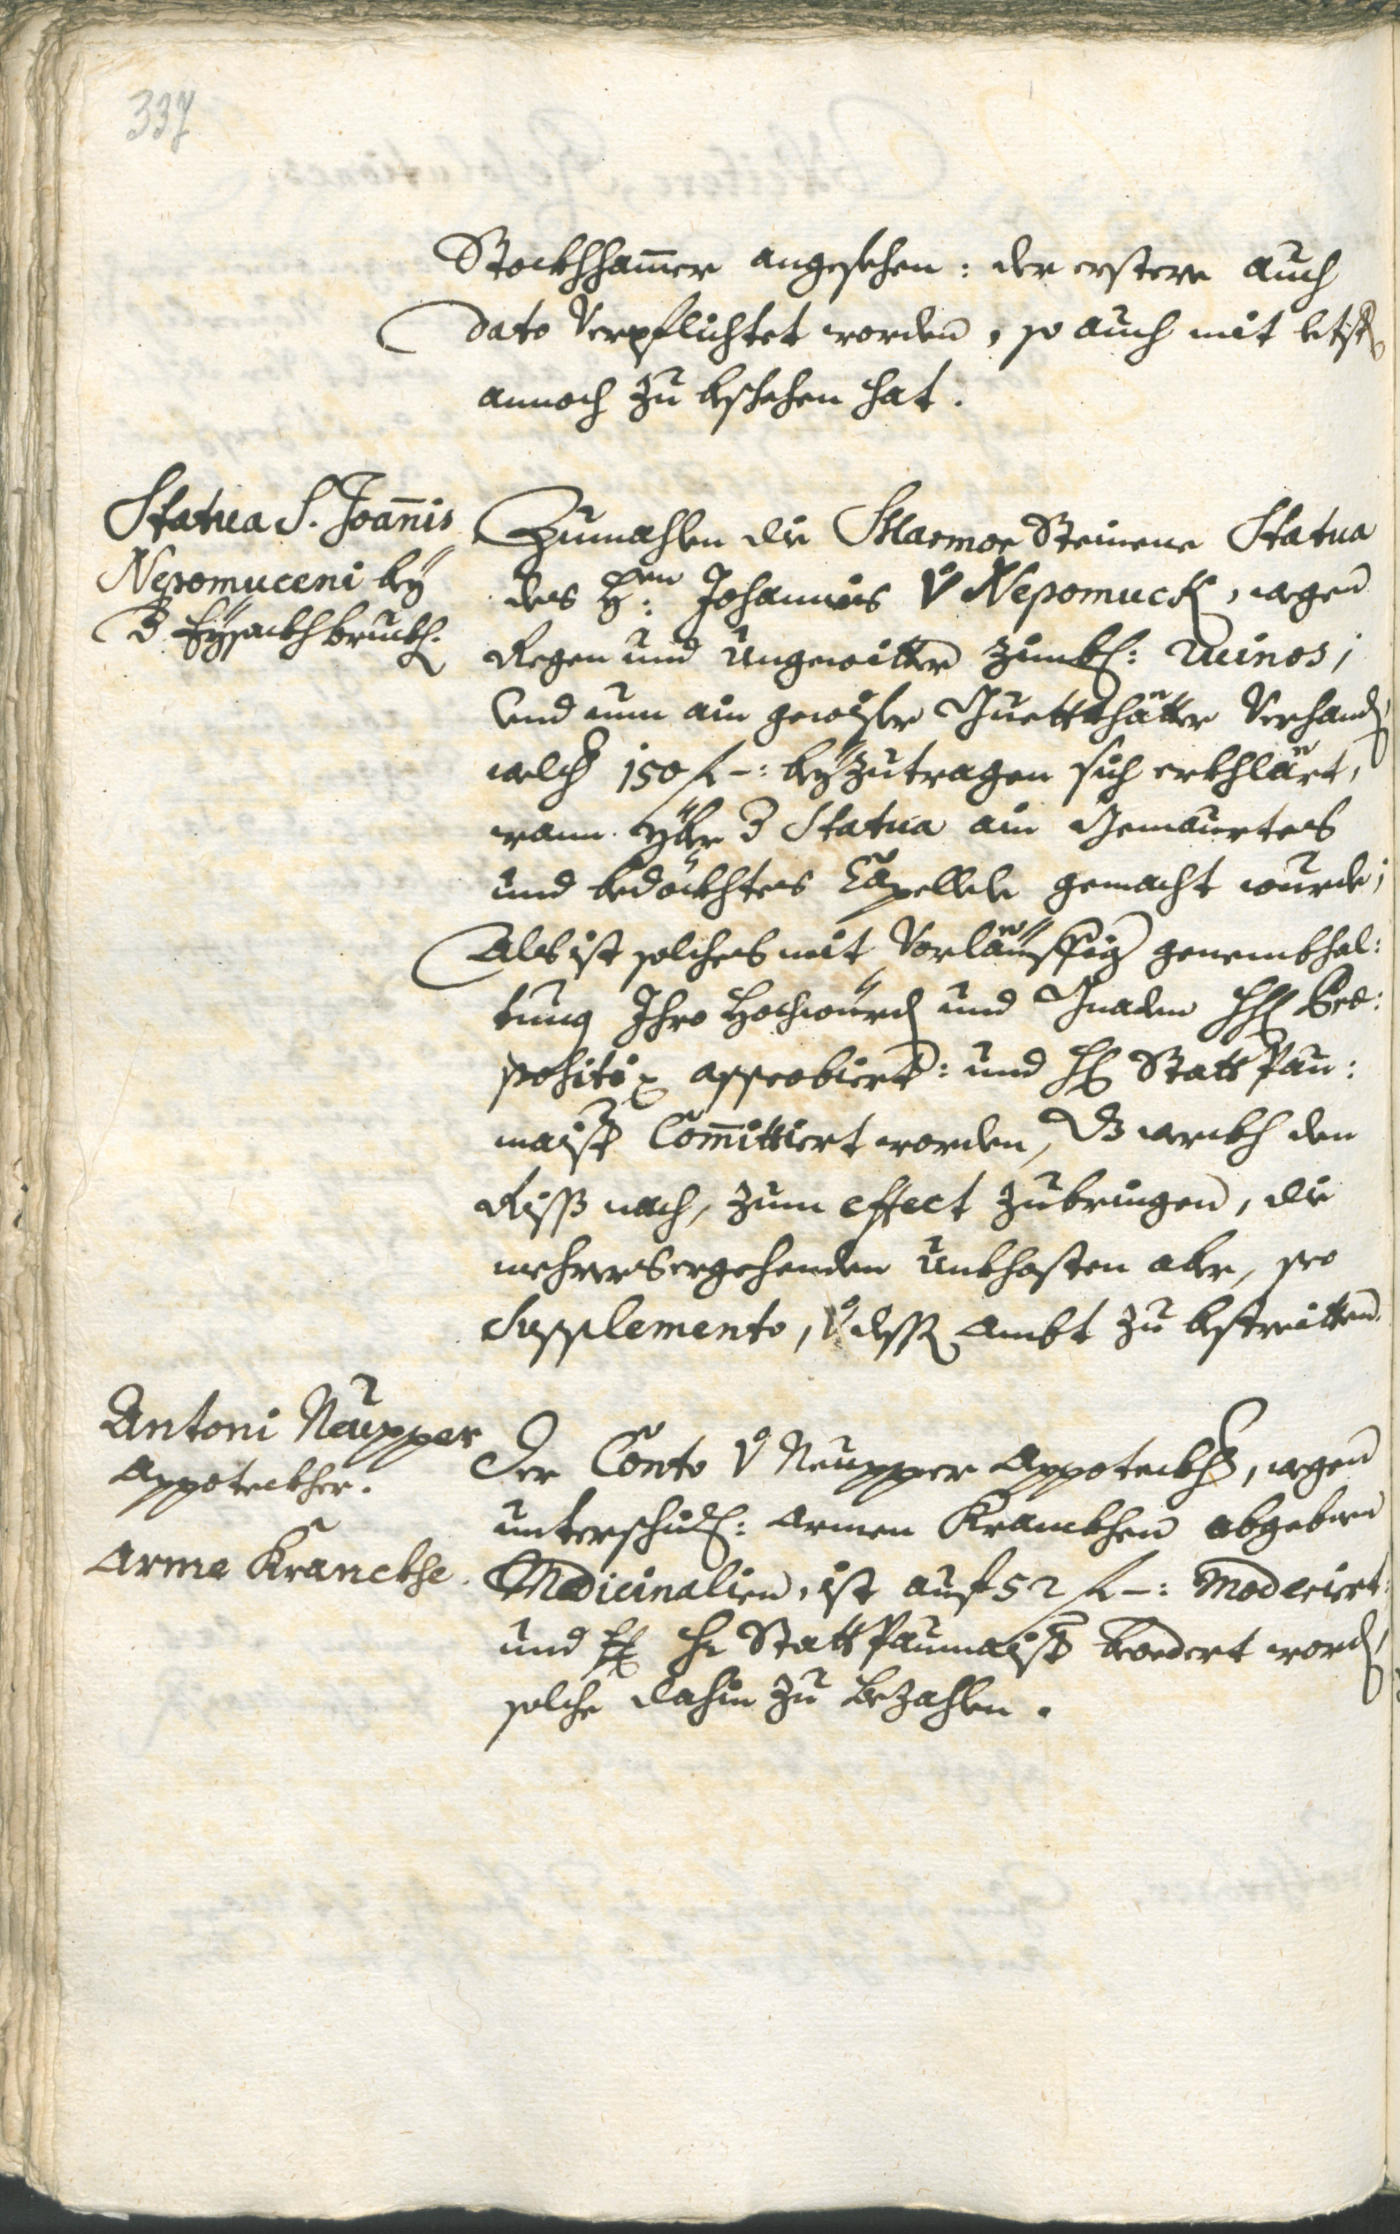 337
Stockhhamer angesehen: der erstere auch
dato Verpflichtet worden, so auch mit letst
annoch zu beschehen hat.
Statua S. Joannis
Nepomuceni bey
Eysackhbruckh.
Zumahlen die Marmor Steinene Statua
des H: Johannes v Nepomuck, wegen
Regen und Ungewitter zimbl: ruinos;
Und nun ein gewisser Guettthätter Verhand,
welch 150 f -: beyzutragen sich erkhlärt,
wann yber d Statua ein Gemauertes
und bedöckhtes Capellele gemacht wurde;
Alß ist solches mit Vorleüffig genembhal:
tung Ihro Hochwürd und Gnaden H Prae:
positi approbiert: und H Statt Pau:
maister Committiert worden, d werckh den
Riss nach, zum effect zubringen, die
mehrers ergehenden Unkhosten aber, pro
Supplemento, v dess Ambt zu bestreitten.
Antoni Neupper
Appoteckher.
Arme Kranckhe.
Der Conto v Neupper Appoteckher, wegen
unterschidl: armen Kranckhen abgeben
Medicinalien, ist auf 52 f -: moderiert:
und H Statt Paumaister beordert word,
solche dahin zu bezahlen.